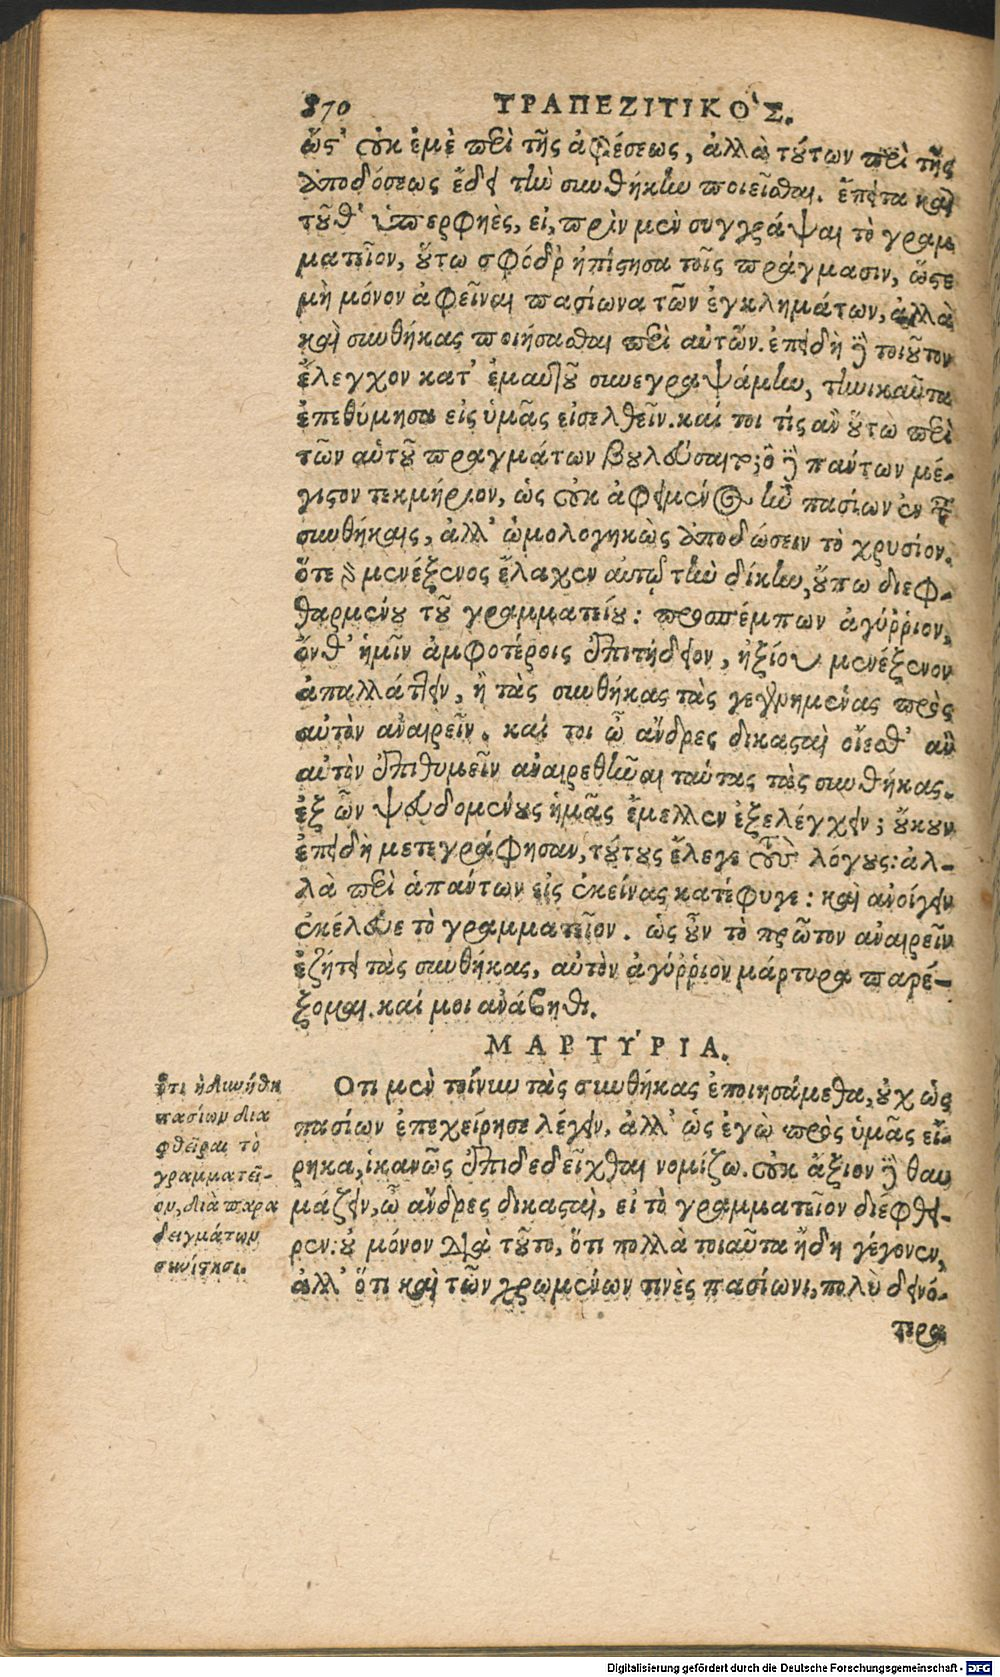 870 ΤΡΑΠΕΖΙΤΙΚΟ'Σ.
ὥς' οὐκ ἐμὲ περὶ τῆς ἀφέσεως, ἀλλὰ τούτων περὶ τῆς
ἀποδόσεως ἔδει τὴν συνθήκην ποιεῖσθαι. ἔπειτα καὶ
τοῦθ' ὑπερφυὲς, εἰ, πρὶν μὲν συγγράψαι τὸ γραμ
ματεῖον, οὕτω σφόδρ' ἠπίστησα τοῖς πράγμασιν, ὥστε
μὴ μόνον ἀφεῖναι πασίωνα τῶν ἐγκλημάτων, ἀλλὰ
καὶ συνθήκας ποιήσασθαι περὶ αὐτῶν. ἐπειδὴ δὲ τοιοῦτον
ἔλεγχον κατ' ἐμαυτοῦ συνεγραψάμην, τηνικαῦτα
ἐπεθύμησα εἰς ὑμᾶς εἰσελθεῖν. καί τοι τίς ἂν οὕτω περὶ
τῶν αὑτοῦ πραγμάτων βουλεύσαιτο; ὃ δὲ πάντων μέ-
γιστον τεκμήριον, ὡς οὐκ ἀφειμένος ἦν πασίων ἐν ταῖς
συνθήκαις, ἀλλ' ὡμολογηκὼς ἀποδώσειν τὸ χρυσίον.
ὅτε γὰρ μενέξενος ἔλαχεν αὐτῷ τὴν δίκην, οὔπω διεφ-
θαρμένου τοῦ γραμματείου: προσπέμπων ἀγύῤῥιον,
ὄνθ' ἡμῖν ἀμφοτέροις ἐπιτήδειον, ἠξίου μενέξενον
ἀπαλλάττειν, ἢ τὰς συνθήκας τὰς γεγενημένας πρὸς
αὐτὸν ἀναιρεῖν. καί τοι ὦ ἄνδρες δικασταὶ οἴεσθ' ἂν
αὐτὸν ἐπιθυμεῖν ἀναιρεθῆναι ταύτας τὰς συνθήκας.
ἐξ ὧν ψευδομένους ἡμᾶς ἔμελλεν ἐξελέγχειν; οὔκουν
ἐπειδὴ μετεγράφησαν, τούτους ἔλεγε τοὺς λόγους: ἀλ-
λὰ περὶ ἁπάντων εἰς ἐκείνας κατέφυγε: καὶ ἀνοίγειν
ἐκέλευε τὸ γραμματεῖον. ὡς οὖν τὸ πρῶτον ἀναιρεῖν
ἐζήτει τὰς συνθήκας, αὐτὸν ἀγύῤῥιον μάρτυρα παρέ-
ξομαι. καί μοι ἀνάβηθι.
ΜΑΡΤΥΡΙΑ.
Ὅτι μὲν τοίνυν τὰς συνθήκας ἐποιησάμεθα, οὐχ ὡς
πασίων ἐπεχείρησε λέγειν, ἀλλ' ὡς ἐγὼ πρὸς ὑμᾶς εἴ-
ρηκα, ἱκανῶς ἐπιδεδεῖχθαι νομίζω. οὐκ ἄξιον δὲ θαυ
μάζειν, ὦ ἄνδρες δικασταὶ, εἰ τὸ γραμματεῖον διέφθει-
ρεν: οὐ μόνον διὰ τοῦτο, ὅτι πολλὰ τοιαῦτα ἤδη γέγονεν,
ἀλλ' ὅτι καὶ τῶν χρωμένων τινὲς πασίωνι, πολὺ δεινό-
τερα
ὅτι ἠδυνήθη
πασίων δια
φθεῖραι τὸ
γραμματεῖ-
ον, διὰ παρα
δειγμάτων
συνίστησι.
Digitalisierung gefördert durch die Deutsche Forschungsgemeinschaft - DFG